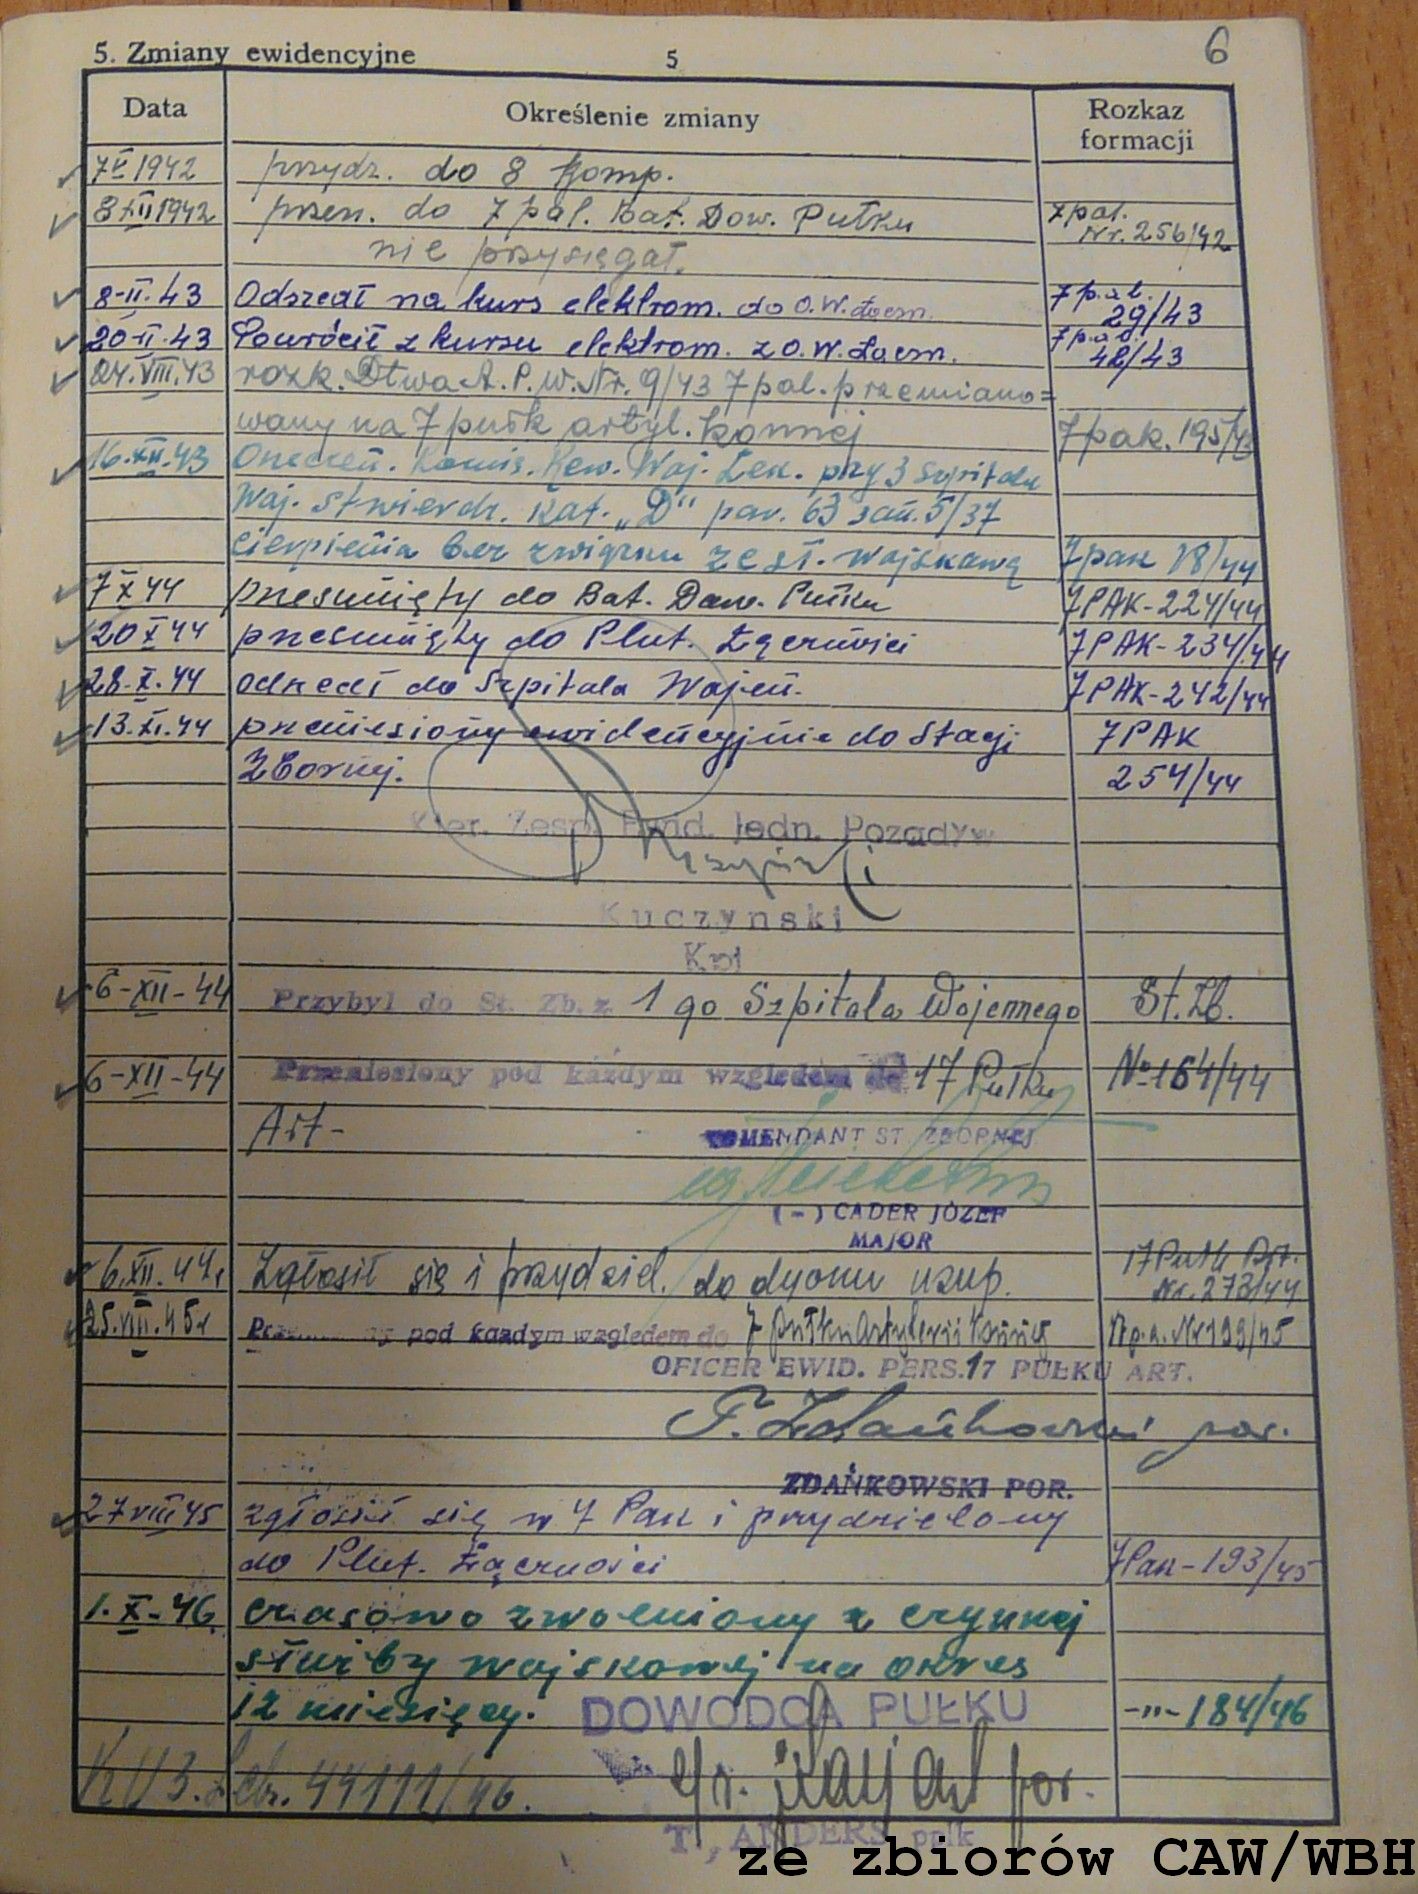 5. Zmiany ewidencyjne 5 6
Data Określenie zmiany Rozkaz formacji
7 V 1942 przydz. do 8 komp.
8 XII 1942 przen. do 7 pal. Bat. Dow. Pułku 7 pal. Nr. 256/42
nie przysięgał.
8-II-43 Odszedł na kurs elektrom. do O.W. Łączn. 7 p.a.l. 29/43
20-II-43 Powrócił z kursu elektrom. z O.W. Łączn. 7 p.a.l. 42/43
24.VIII.43 rozk. Dtwa A.P.W. Nr. 9/43 7 pal. przemiano=
wany na 7 pułk artyl. konnej 7 pak. 195/43
16.XII.43 Orzeczeń. Komis. Rew. Woj. Lek. przy 3 szpitalu
Woj. stwierdz. kat. „D" par. 63 san. 5/37
cierpienia bez związku ze sł. wojskową 7 pak 18/44
7 X 44 przesunięty do Bat. Dow. Pułku 7 PAK-224/44
20 X 44 przesunięty do Plut. Łączności 7 PAK-234/44
28.X.44 odszedł do Szpitala Wojen. 7 PAK-242/44
13.XI.44 przeniesiony ewidencyjnie do Stacji 7 PAK
Zbornej. 254/44
Kier. Zesp. Ewid. Jedn. Pozadyw
Kuczynski
Kpt
6-XII-44 Przybyl do St. Zb. z 1 go Szpitala Wojennego St. Zb.
6-XII-44 Przeniesiony pod każdym względem do 17 Pułku No 164/44
Art-
KOMENDANT ST. ZBORNEJ
(-) CADER JÓZEF
MAJOR
6.XII.44r Zgłosił się i przydziel. do dyonu uzup. 17 Pułk Art. Nr. 273/44
25.VIII.45r pod każdym względem do 7 pułku Artylerii Konnej 17 p.a. Nr 199/45
OFICER EWID. PERS. 17 PUŁKU ART.
F. Zdańkowski por.
ZDAŃKOWSKI POR.
27 VIII 45 zgłosił się w 7 Pak i przydzielony
do Plut. Łączności 7 Pak-193/45
1.X-46 czasowo zwolniony z czynnej
służby wojskowej na okres
12 miesięcy. -"- 184/46
DOWODCA PUŁKU
por.
44111/46.
T, ANDERS ppłk
ze zbiorów CAW/WBH